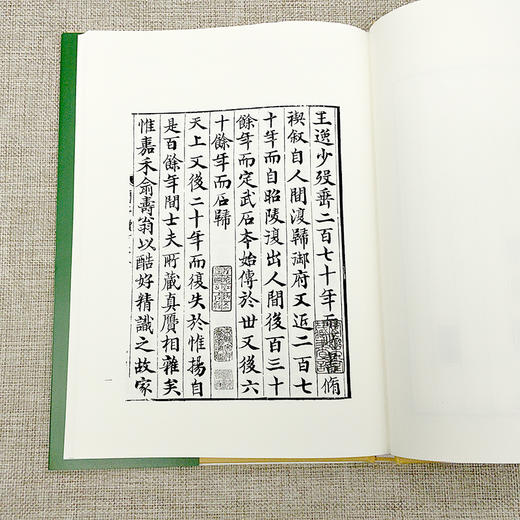 王逸少歿垂二百七十年而脩
禊叙自人間復歸御府又近二百七
十年而自昭陵復出人間後百三十
餘年而定武石本始傳於世又後六
十餘年而石歸
天上又後二十年而復失於惟揚自
是百餘年間士夫所藏真贋相雜矣
惟嘉禾俞壽翁以酷好精識之故家